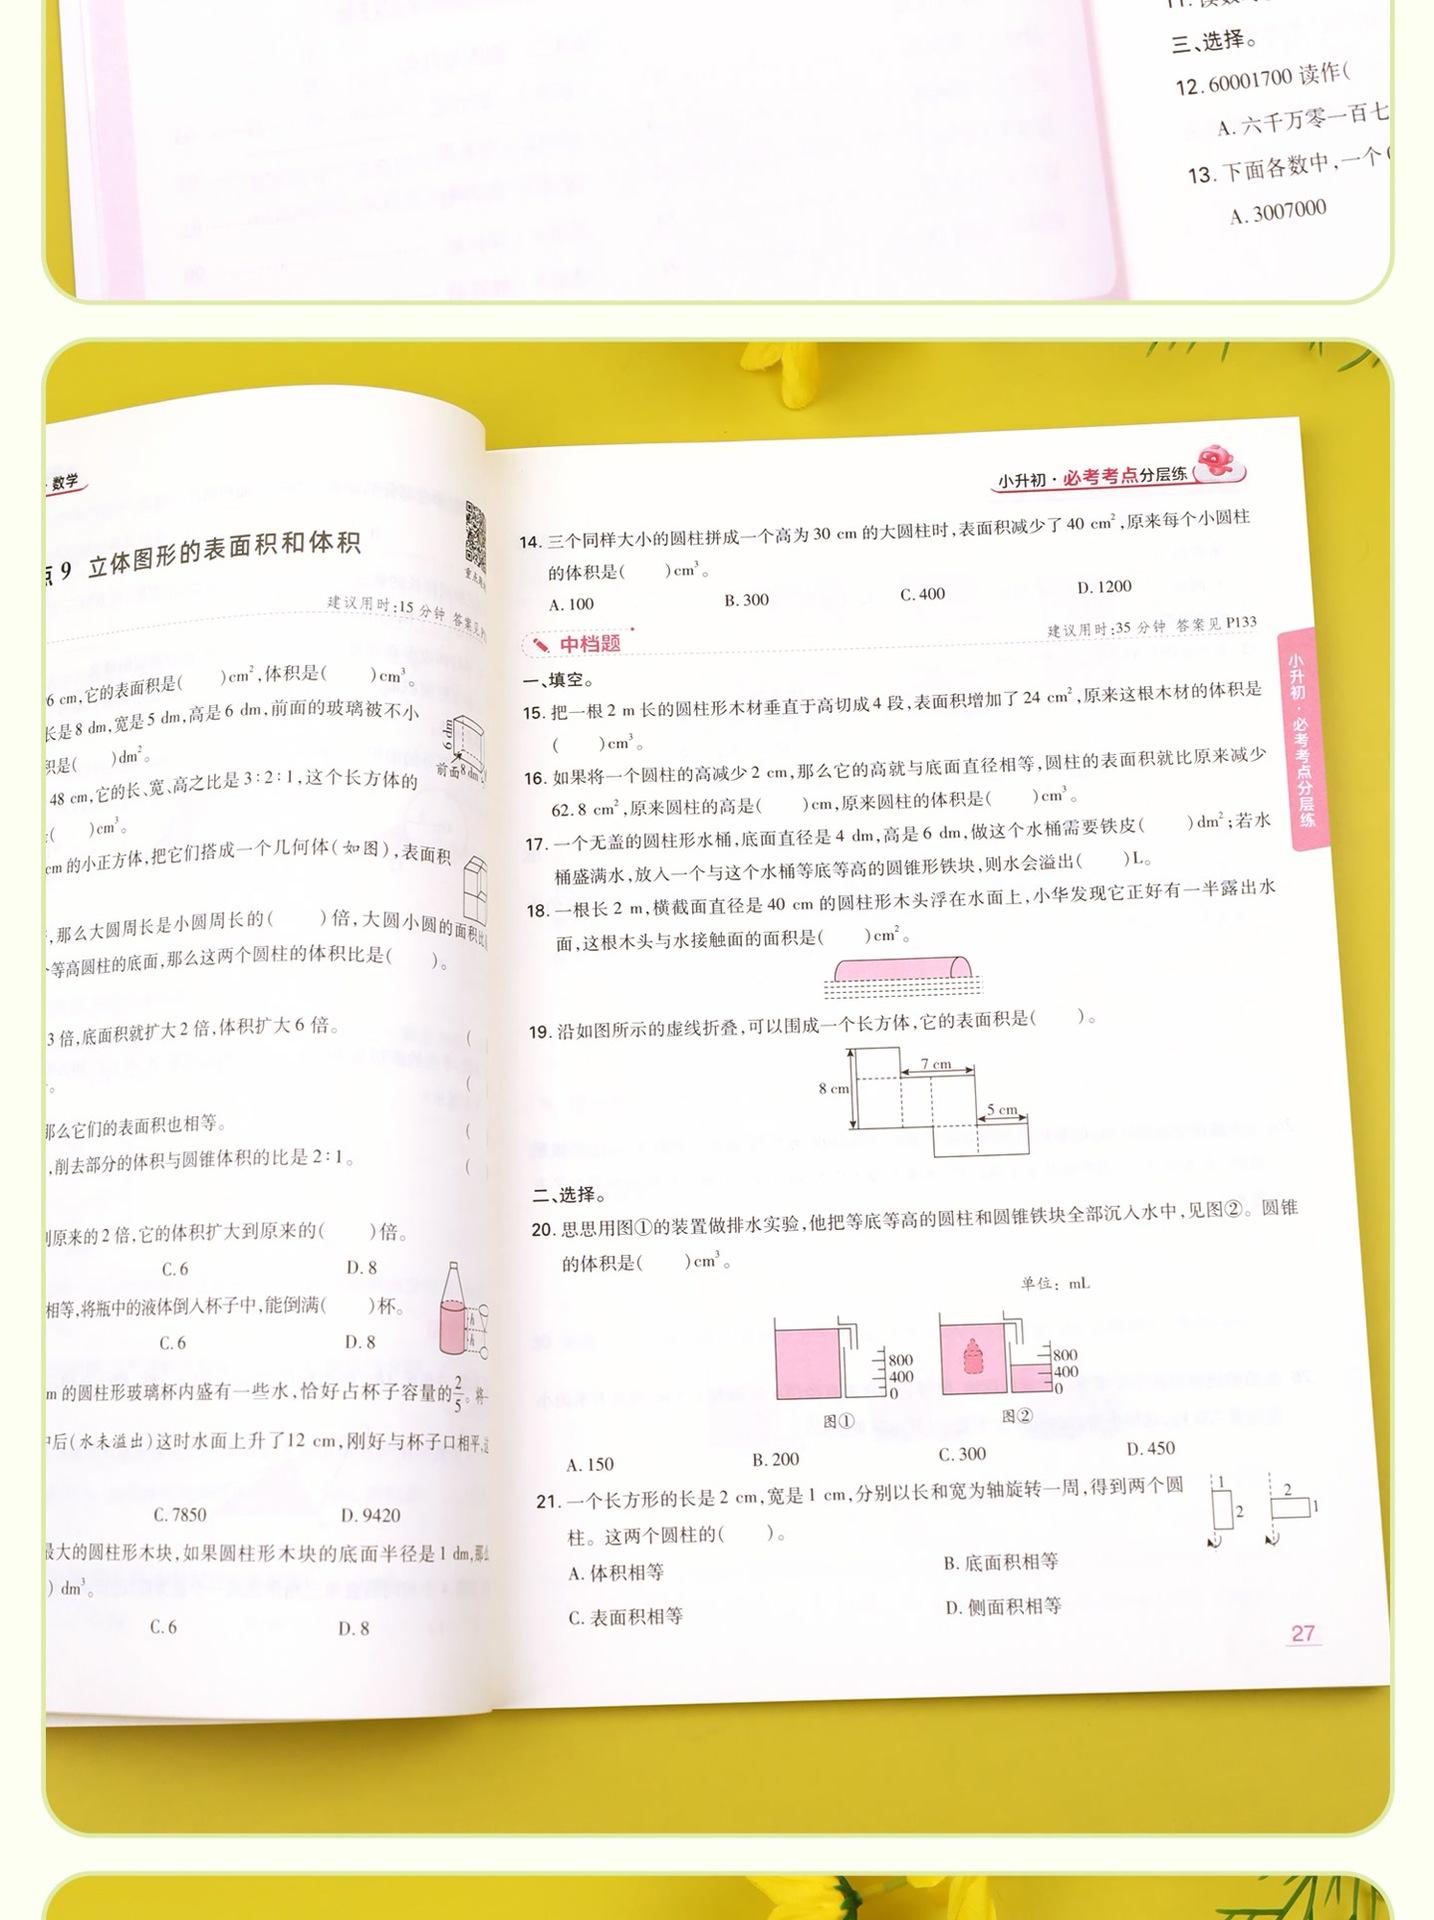 三、选择。
12.60001700 读作(
A.六千万零一百七
13.下面各数中,一个
A.3007000
·数学
点9 立体图形的表面积和体积
建议用时:15分钟 答案见P1
6 cm,它的表面积是( )cm²,体积是( )cm³。
长是8 dm,宽是5 dm,高是6 dm,前面的玻璃被不小
积是( )dm²。
6 dm
前面 8 dm
48 cm,它的长、宽、高之比是3:2:1,这个长方体的
( )cm³。
cm的小正方体,把它们搭成一个几何体(如图),表面积
,那么大圆周长是小圆周长的( )倍,大圆小圆的面积比
个等高圆柱的底面,那么这两个圆柱的体积比是( )。
3倍,底面积就扩大2倍,体积扩大6倍。 (
。 (
那么它们的表面积也相等。 (
,削去部分的体积与圆锥体积的比是2:1。 (
到原来的2倍,它的体积扩大到原来的( )倍。
C.6 D.8
相等,将瓶中的液体倒入杯子中,能倒满( )杯。
h
h
C.6 D.8
m的圆柱形玻璃杯内盛有一些水,恰好占杯子容量的2/5。将
中后(水未溢出)这时水面上升了12 cm,刚好与杯子口相平,这
C.7850 D.9420
最大的圆柱形木块,如果圆柱形木块的底面半径是1 dm,那么
) dm³。
C.6 D.8
小升初·必考考点分层练
14.三个同样大小的圆柱拼成一个高为30 cm的大圆柱时,表面积减少了40 cm²,原来每个小圆柱
的体积是( )cm³。
A.100 B.300 C.400 D.1200
中档题
建议用时:35分钟 答案见P133
一、填空。
15.把一根2 m长的圆柱形木材垂直于高切成4段,表面积增加了24 cm²,原来这根木材的体积是
( )cm³。
16.如果将一个圆柱的高减少2 cm,那么它的高就与底面直径相等,圆柱的表面积就比原来减少
62.8 cm²,原来圆柱的高是( )cm,原来圆柱的体积是( )cm³。
17.一个无盖的圆柱形水桶,底面直径是4 dm,高是6 dm,做这个水桶需要铁皮( )dm²;若水
桶盛满水,放入一个与这个水桶等底等高的圆锥形铁块,则水会溢出( )L。
18.一根长2 m,横截面直径是40 cm的圆柱形木头浮在水面上,小华发现它正好有一半露出水
面,这根木头与水接触面的面积是( )cm²。
19.沿如图所示的虚线折叠,可以围成一个长方体,它的表面积是( )。
7 cm
8 cm
5 cm
二、选择。
20.思思用图①的装置做排水实验,他把等底等高的圆柱和圆锥铁块全部沉入水中,见图②。圆锥
的体积是( )cm³。
单位:mL
800
400
0
图①
800
400
0
图②
A.150 B.200 C.300 D.450
21.一个长方形的长是2 cm,宽是1 cm,分别以长和宽为轴旋转一周,得到两个圆
柱。这两个圆柱的( )。
1
2
2
1
A.体积相等 B.底面积相等
C.表面积相等 D.侧面积相等
小升初·必考考点分层练
27